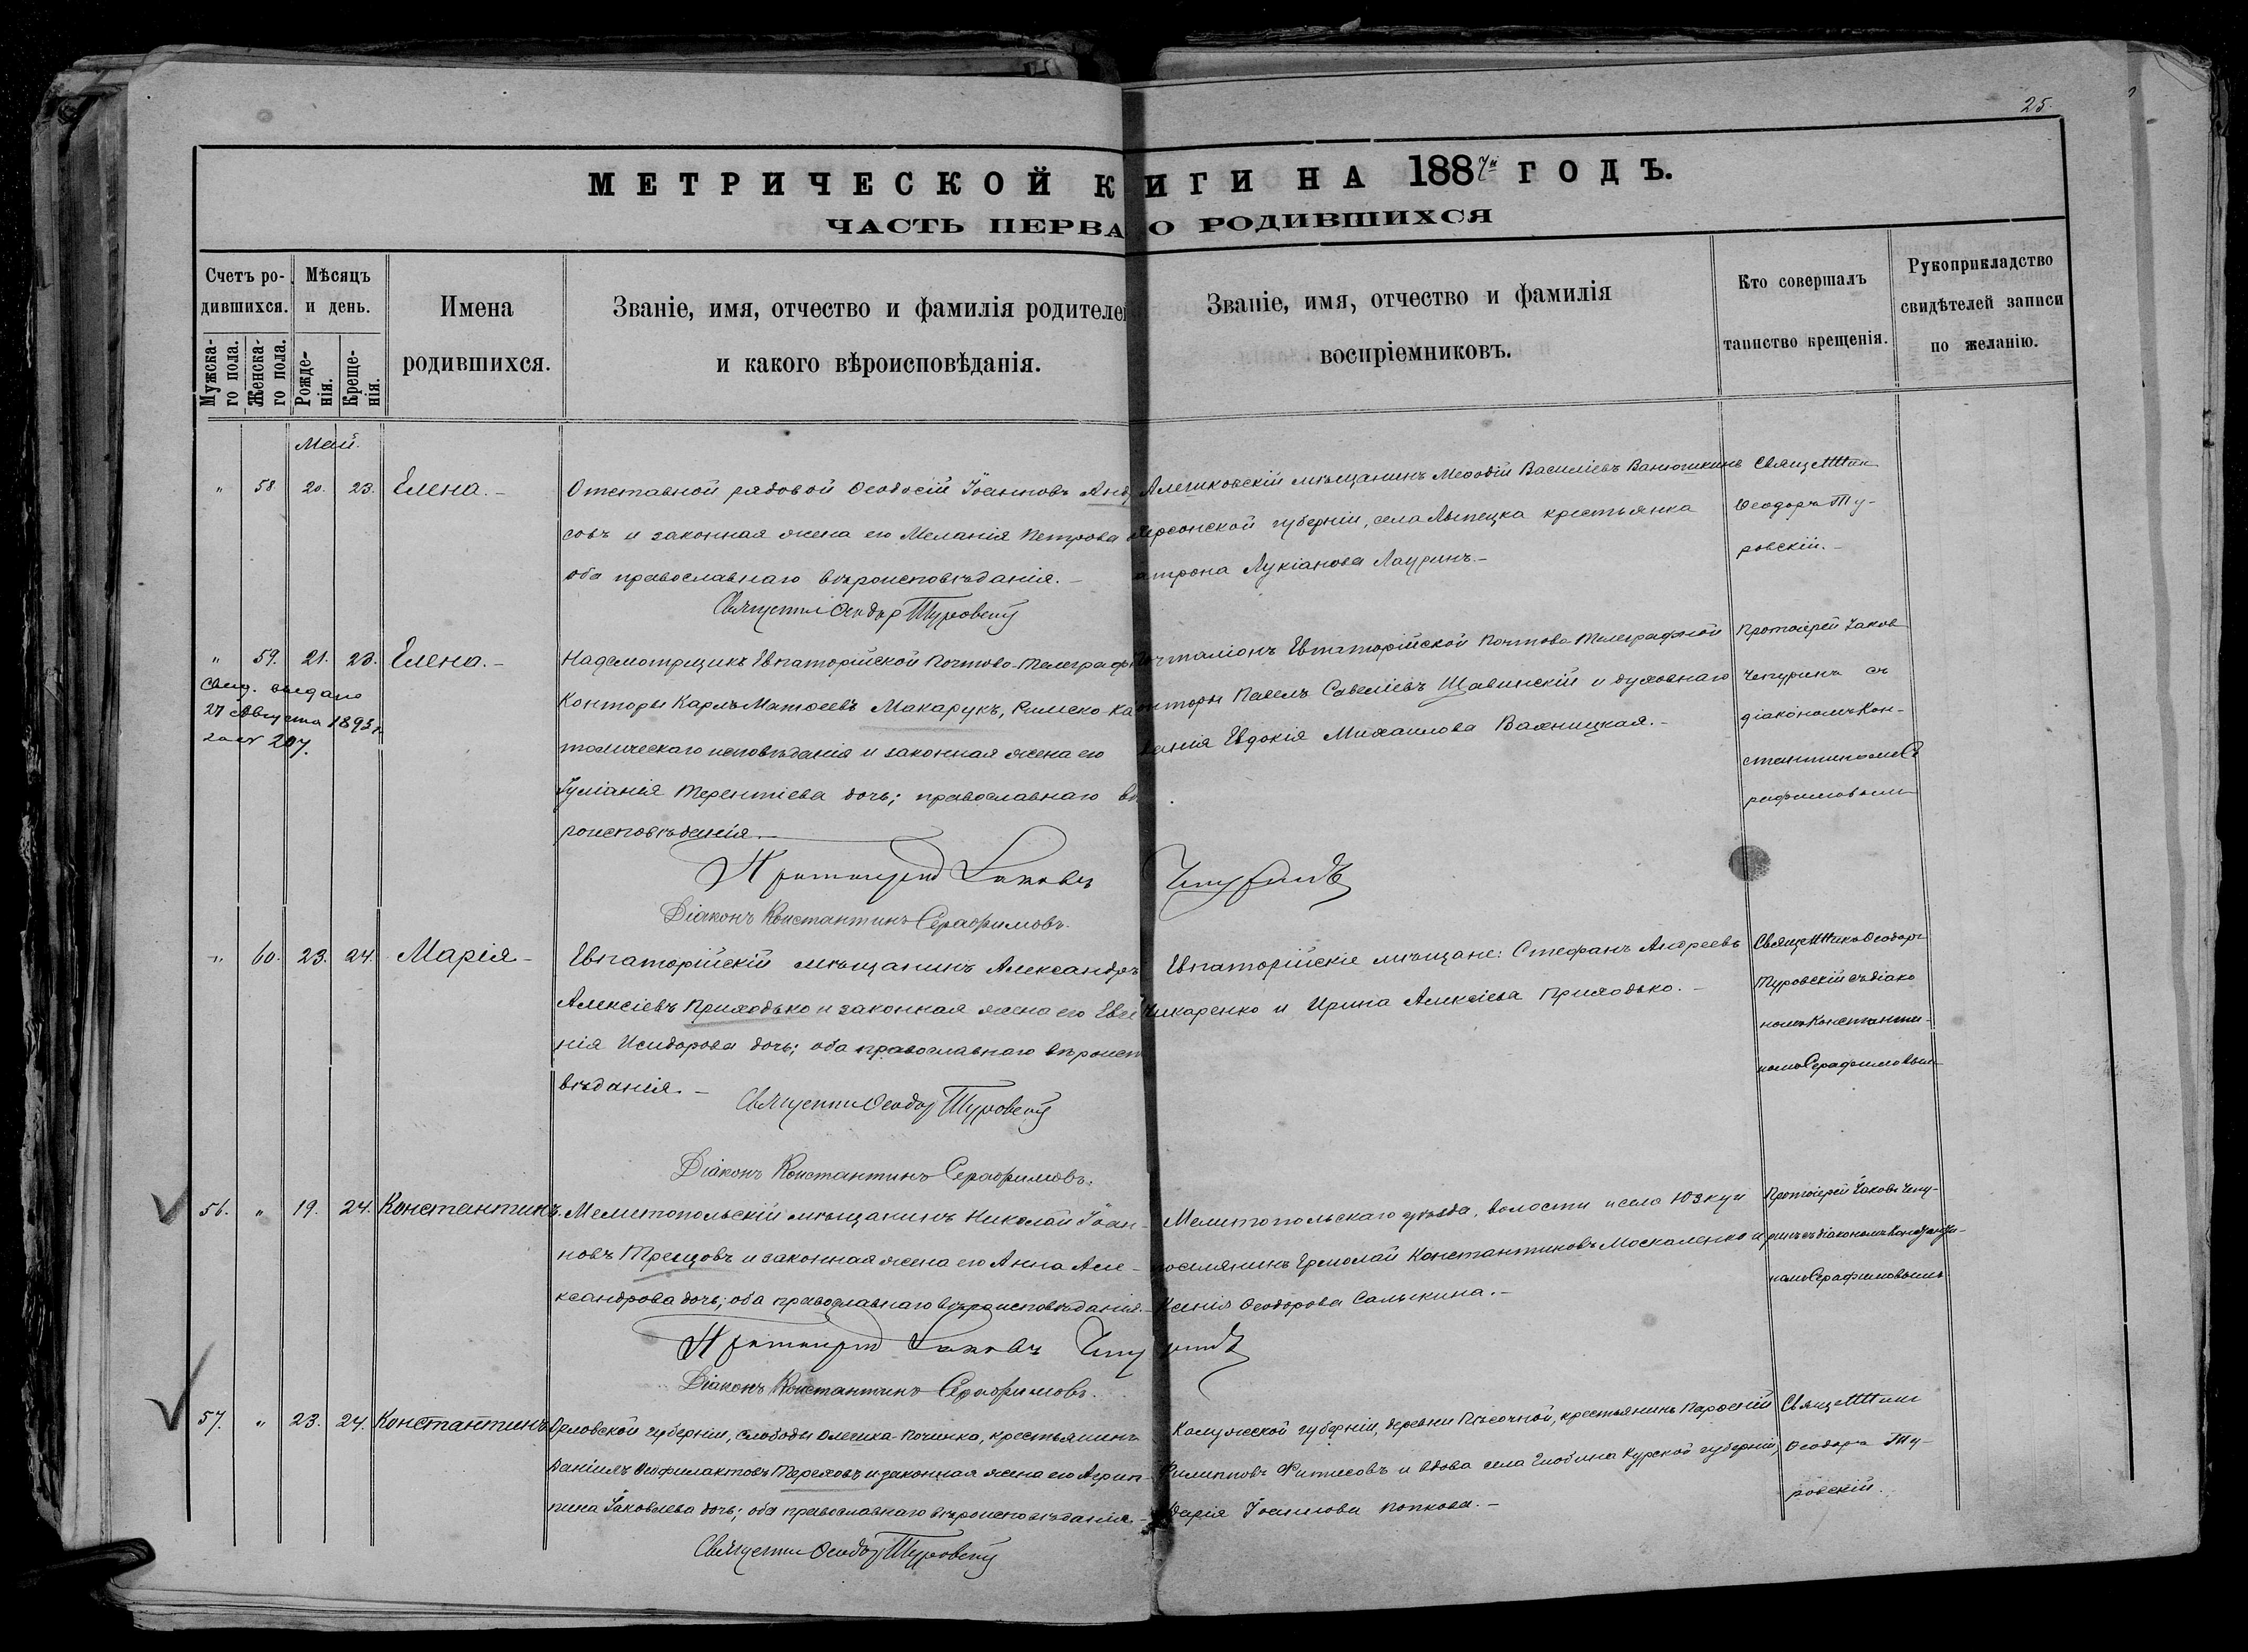 25.
МЕТРИЧЕСКОЙ К ИГИ НА 1887й ГОДЪ.
ЧАСТЬ ПЕРВА О РОДИВШИХСЯ
Счетъ ро-
дившихся.
Мѣсяцъ
и день.
Мужска-
го пола.
Женска-
го пола.
Рожде-
нія.
Креще-
нія.
Имена
родившихся.
Званіе, имя, отчество и фамилія родителе
и какого вѣроисповѣданія.
Званіе, имя, отчество и фамилія
воспріемниковъ.
Кто совершалъ
таинство крещенія.
Рукоприкладство
свидѣтелей записи
по желанію.
Май.
" 58. 20. 23. Елена.-
Отставной рядовой Ѳеодосій Іоанновъ Анд
совъ и законная жена его Меланія Петрова
оба православнаго вѣроисповѣданія.-
Ѳеодоръ Туровскій
Алешковскій мѣщанинъ Меѳодій Василіевъ Ванюшкинъ
Херсонской губерніи, села крестьянка
атрона Лукіанова Лауринъ.-
Священникъ
Ѳеодоръ Ту-
ровскій.-
" 59. 21. 23. Елена.-
Свид. выдано
27 Августа 1893 г.
за № 207.
Надсмотрщикъ Евпаторійской Почтово-Телеграф
Конторы Карлъ Матѳеевъ Макарукъ, Римско-ка
толическаго исповѣданія и законная жена его
Іуліанія Терентіева дочь; православнаго вѣ
роисповѣданія.-
Почталіонъ Евпаторійской Почтово-Телеграфной
онторы Павелъ Савеліевъ Щавинскій и духовнаго
званія Евдокія Михаилова Важницкая.-
Протоіерей Іаковъ
Чепуринъ съ
діакономъ Кон-
стантиномъ Се
рафимовымъ
Протоіерей Іаковъ Чепуринъ
Діаконъ Константинъ Серафимовъ.
" 60. 23. 24. Марія-
Евпаторійскій мѣщанинъ Александръ
Алексіевъ Приходько и законная жена его Евге
нія Исидорова дочь; оба православнаго вѣроисп
вѣданія.-
Ѳеодоръ Туровскій
Діаконъ Константинъ Серафимовъ.
Евпаторійскіе мѣщане: Стефанъ Андреевъ
Чикаренко и Ирина Алексіева Приходько.-
Священникъ Ѳеодоръ
Туровскій съ діако
номъ Константи-
номъ Серафимовым
56. " 19. 24. Константинъ.
Мелитопольскій мѣщанинъ Николай Іоан-
новъ Трещовъ и законная жена его Анна Але-
ксандрова дочь; оба православнаго вѣроисповѣданія.-
Мелитопольскаго уѣзда, волости и села Юзкуи
поселянинъ Ермолай Константиновъ Москаленко и
Ксенія Ѳеодорова Салыкина.-
Протоіерей Іаковъ Чепу-
ринъ съ діакономъ Константи-
номъ Серафимовымъ
Протоіерей Іаковъ Чепуринъ
Діаконъ Константинъ Серафимовъ.
57. " 23. 24. Константинъ
Орловской губерніи, слободы Олешка-Починка, крестьянинъ
Даніилъ Ѳеофилактовъ Тереховъ и законная жена его Агрип-
пина Іаковлева дочь; оба православнаго вѣроисповѣданія.-
Ѳеодоръ Туровскій
Калужской губерніи, деревни Пѣсочной, крестьянинъ Парѳеній
Филипповъ Фитисовъ и вдова села Глобина Курской губерніи,
Дарія Іоакимова Попкова.-
Священник
Ѳеодоръ Ту-
ровскій.